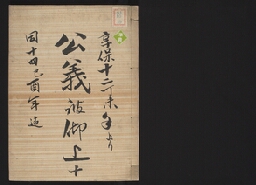 享保十二丁未年より
公義被仰上十
同十四己酉年迄